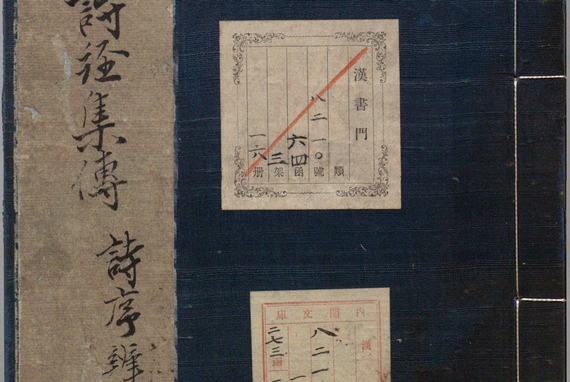 漢書門
類
八二一〇號
六四函
三架
一六册
詩経集傳
詩序辨
內閣文庫
漢
八二一
二七三